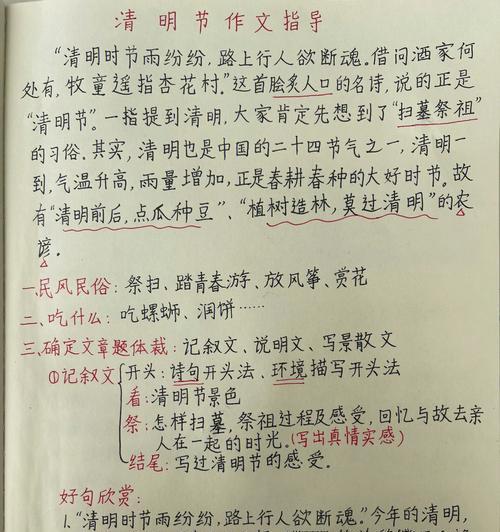 清明节作文指导
“清明时节雨纷纷,路上行人欲断魂。借问酒家何
处有,牧童遥指杏花村。”这首脍炙人口的名诗,说的正是
“清明节”。一指提到清明,大家肯定先想到了“扫墓祭祖”
的习俗。其实,清明也是中国的二十四节气之一,清明一
到,气温升高,雨量增加,正是春耕春种的大好时节。故
有“清明前后,点瓜种豆”、“植树造林,莫过清明”的农
谚。
一、民风民俗:祭扫、踏青春游、放风筝、赏花
二、吃什么:吃螺蛳、润饼……
三、确定文章题体裁:记叙文、说明文、写景散文
①记叙文 开头:诗句开头法、环境描写开头法
看:清明节景色
祭:怎样扫墓,祭祖过程及感受,回忆与故去亲
人在一起的时光。(写出真情实感)
结尾:写过清明节的感受。
好句欣赏:
1.“清明时节雨纷纷,路上行人欲断魂。”今年的清明,